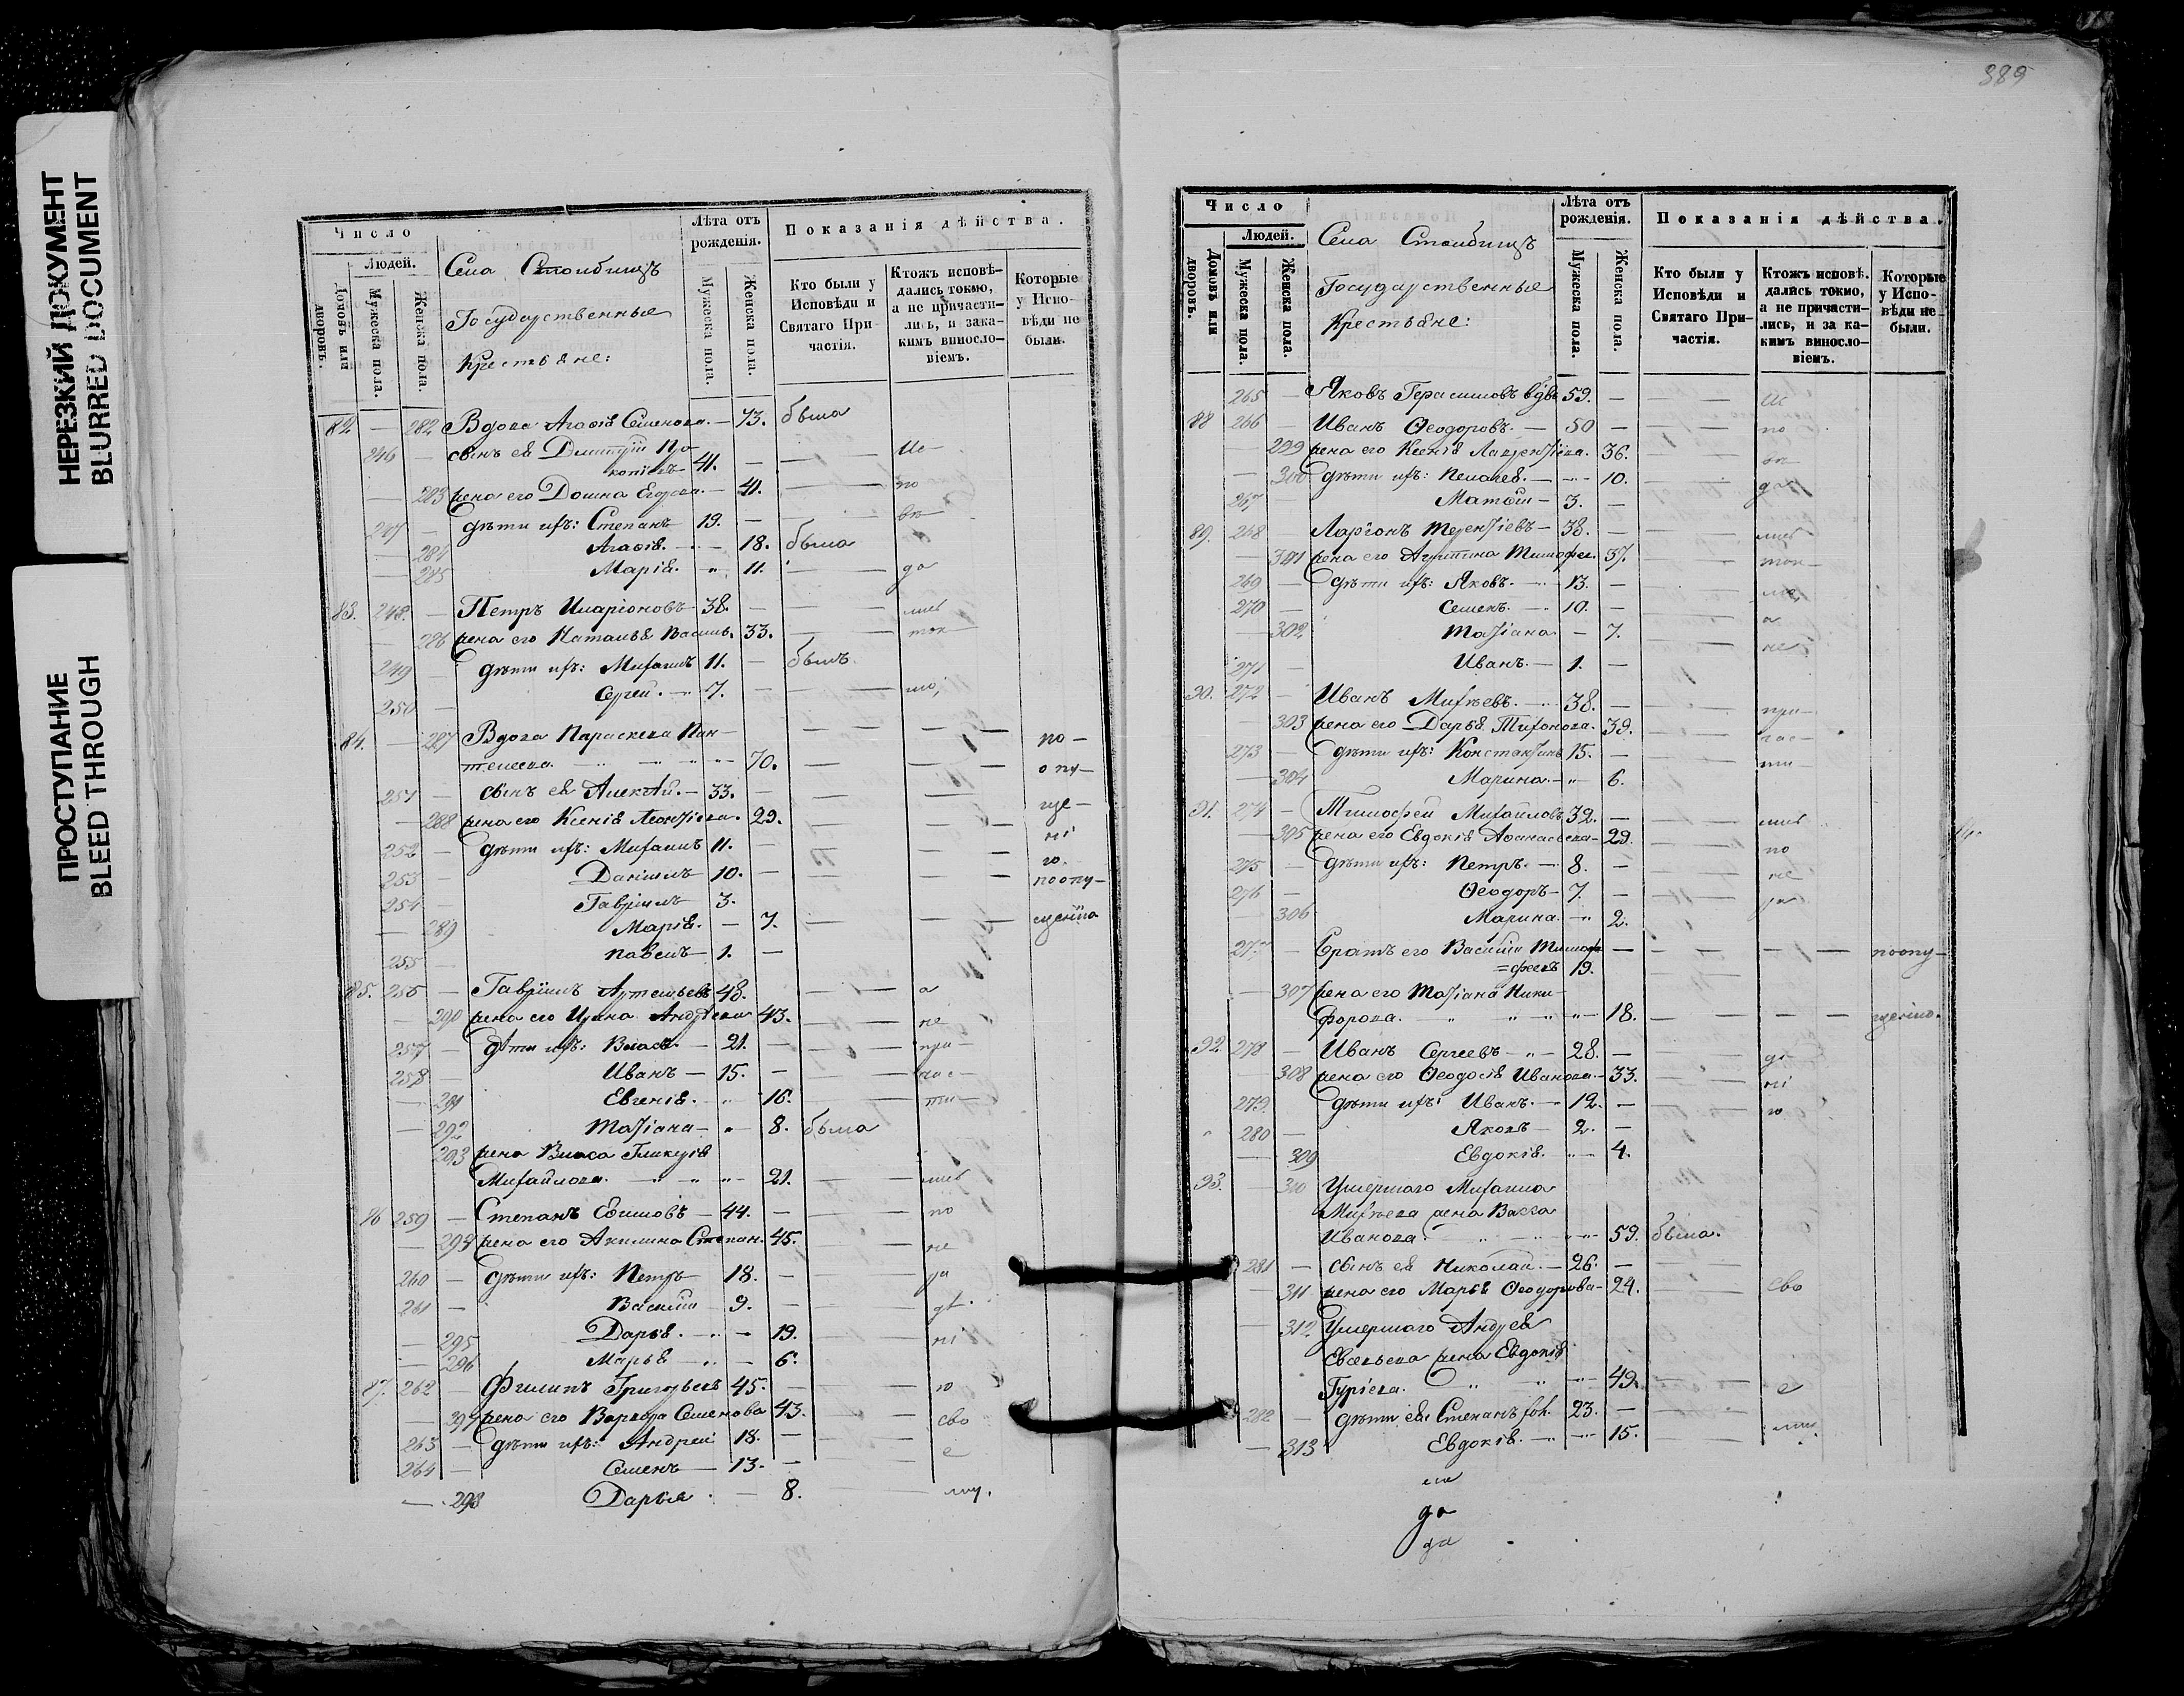 НЕРЕЗКИЙ ДОКУМЕНТ
BLURRED DOCUMENT
ПРОСТУПАНИЕ
BLEED THROUGH
Число
Людей.
Домовъ или дворовъ.
Мужеска пола.
Женска пола.
Села Столбищъ
Государственные
Крестьяне:
Лѣта отъ рожденія.
Мужеска пола.
Женска пола.
Показанія дѣйства.
Кто были у Исповѣди и Святаго Причастія.
Ктожъ исповѣдались токмо, а не причастились, и закакимъ винословіемъ.
Которые у Исповѣди не были.
82 — 282 Вдова Агаѳія Семенова. — 73. была
246 — сынъ ея Дмитрій Про-
копіевъ 41. — Ис-
— 283 жена его Домна Егорова. — 41. по
247 — дѣти ихъ: Степанъ 19. — вѣ
— 284 Агаѳія. — 18. была
— 285 Марія. " 11. да
83. 248. — Петръ Иларіоновъ 38. — лись
— 286 жена его Наталья Васил. 33. ток
249 — дѣти ихъ: Михаилъ 11. — былъ.
250 — Сергей. — 7. — мо,
84. — 287 Вдова Параскева Пан-
телеева. 70. по-
опу-
251 — сынъ ея Алексѣй. — 33. —
— 288 жена его Ксенія Леонтіева. 29. ще-
252 — дѣти ихъ: Михаилъ 11. — ні
253 — Даніилъ 10. — ю.
254 — Гавріилъ 3. поопу-
— 289 Марія. — 7. щенію
255 — Павелъ 1. —
85. 256 — Гавріилъ Артемьевъ 48. а
— 290 жена его Ирина Андреева 43. не
257 — дѣти ихъ: Власъ. — 21. — при-
258 — Иванъ — 15. — час-
— 291 Евгенія. 16. ти-
— 292 Татіана — " 8. была
293 жена Власа Гликерія
Михайлова. 21. лись
86 259 — Степанъ Ефимовъ — 44. — по
— 294 жена его Акилина Степан. 45. не
260 — дѣти ихъ: Петръ 18. — ра
261 — Василій 9. — дѣ.
— 295 Дарья. — 19. ні
— 296 Марья — 6.
87. 262 — Филипъ Григорьевъ 45. — ю
— 297 жена его Варвара Семенова 43. сво
263 — дѣти ихъ: Андрей 18. — е
264 — Семенъ — 13. —
— 298 Дарья — 8. му.
389
Число
Людей.
Домовъ или дворовъ.
Мужеска пола.
Женска пола.
Села Столбищъ
Государственные
Крестьяне:
Лѣта отъ рожденія.
Мужеска пола.
Женска пола.
Показанія дѣйства.
Кто были у Исповѣди и Святаго Причастія.
Ктожъ исповѣдались токмо, а не причастились, и за какимъ винословіемъ.
Которые у Исповѣди не были.
265 — Яковъ Герасимовъ вдвъ 59. — Ис
88 266 — Иванъ Ѳеодоровъ. — 50 — по
299 жена его Ксенія Лаврентіева. 36. вѣ
— 300 дѣти ихъ: Пелагея. 10. да
267 — Матѳей — 3. —
89. 268 — Ларіонъ Терентіевъ — 38. — лись
— 301 жена его Агрипина Тимофее. 37. ток-
269 — дѣти ихъ: Яковъ. 13. — мо,
270 — Семенъ. — 10. — а
— 302 Татіана — 7. не
271 — Иванъ. — 1. —
90. 272 — Иванъ Михѣевъ. 38. — при-
— 303 жена его Дарья Тихонова. 39. час-
273 — дѣти ихъ: Константинъ 15. — ти-
— 304 Марина. — 6.
91. 274 — Тимофей Михайловъ 32. — лись
— 305 жена его Евдокія Аѳанасьева — 29. по
275 — дѣти ихъ: Петръ. — 8. — не
276 — Ѳеодоръ — 7. — ра
— 306 Марина. — 2.
277 — братъ его Василій Тимоф —
=феевъ 19. поопу-
— 307 жена его Татіана Ники-
форова. 18. щенію.
92. 278 — Иванъ Сергеевъ 28. — дѣ
— 308 жена его Ѳеодосія Иванова. — 33. ні
279. дѣти ихъ: Иванъ. — 12. — ю
280 — Яковъ — 2. —
— 309 Евдокія. — 4.
93. — 310 Умершаго Михаила
Михѣева жена Васса
Иванова. 59. была.
281 — сынъ ея Николай. — 26. —
— 311 жена его Марья Ѳеодорова — 24. сво
— 312 Умершаго Андрея
Евсевьева жена Евдокія
Гуріева. 49. е
282 — дѣти ея: Степанъ хол. 23. —
— 313 Евдокія. — 15. му.
да
да